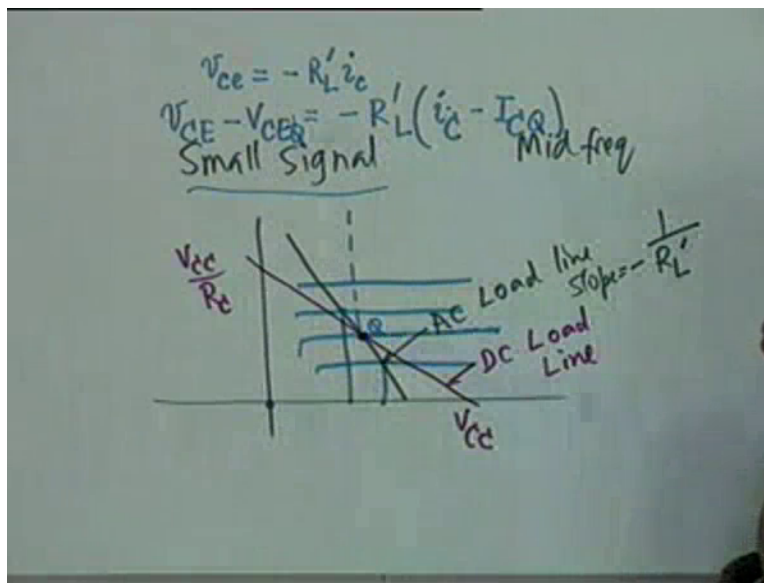 v_ce = - R_L' i_c
v_CE - V_CEQ = - R_L' (i_C - I_CQ)
Small Signal Mid freq
V_CC / R_C
AC Load line
slope = - 1 / R_L'
Q
DC Load
Line
V_CC